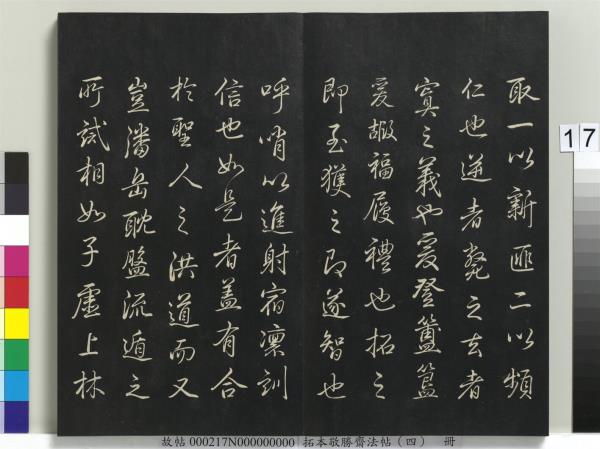 取一以新匪二以頻
仁也逆者斃之去者
寘之義也爰登簠簋
爰嘏福履禮也拓之
即至獲之即遂智也
呼哨以進射宿凜訓
信也如是者蓋有合
於聖人之洪道而又
豈潘岳耽盤流遁之
所試相如子虛上林
17
故帖000217N000000000 拓本敬勝齋法帖(四) 冊